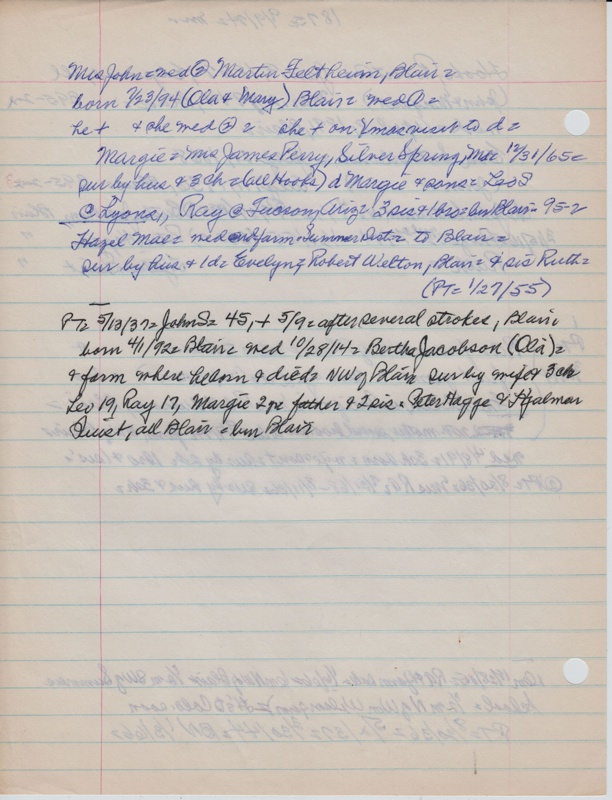 Mrs John = med② Martin Feltheim, Blair =
born 7/23/94 (Ola & Mary) Blair = med① =
he + & she med② = she + on Xmas visit to d =
Margie = Mrs James Perry, Silver Spring, 12/31/65 =
sur by hus & 3 ch = (all Hooks) d Margie & sons = Leo S
@ Lyons, Ray @ Tucson, Ariz = 3 sis & 1 bro = bur Blair = 95-2
Hazel Mae = med farm = Summer Dist = to Blair =
sur by hus & 1 d = Evelyn = Robert Welton, Blair = & sis Ruth =
(PT = 1/27/55)
PT = 5/13/37 = John S = 45, + 5/9 = after several strokes, Blair =
born 4/1/92 = Blair = med 10/28/14 = Bertha Jacobson (Ola) =
& farm where he born & died = NW of Blair sur by wife & 3 ch
Leo 19, Ray 17, Margie 2 father & 2 sis = Peter Hagge & Hjalmer
Quist, all Blair = bur Blair